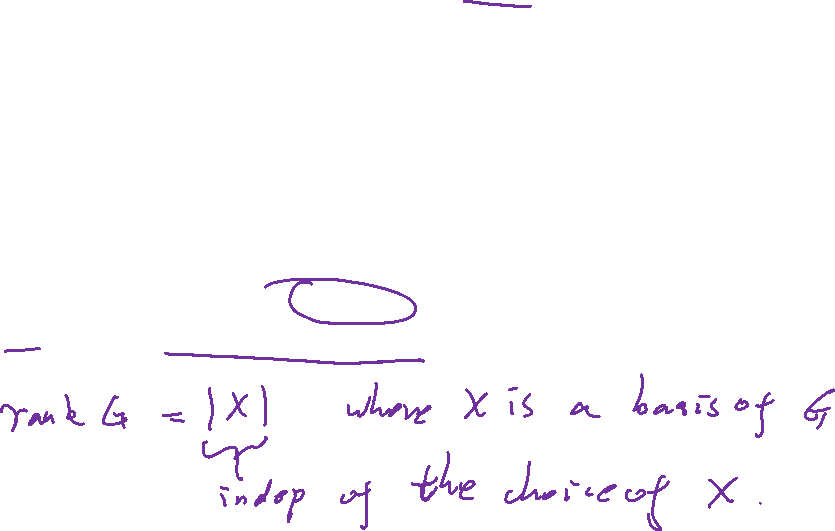 rank G = |X| where X is a basis of G
indep of the choice of X.